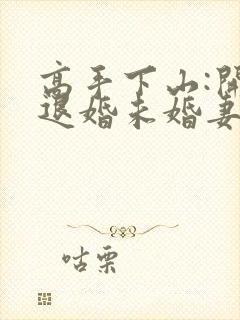 高手下山:開
退婚未婚妻
咕栗